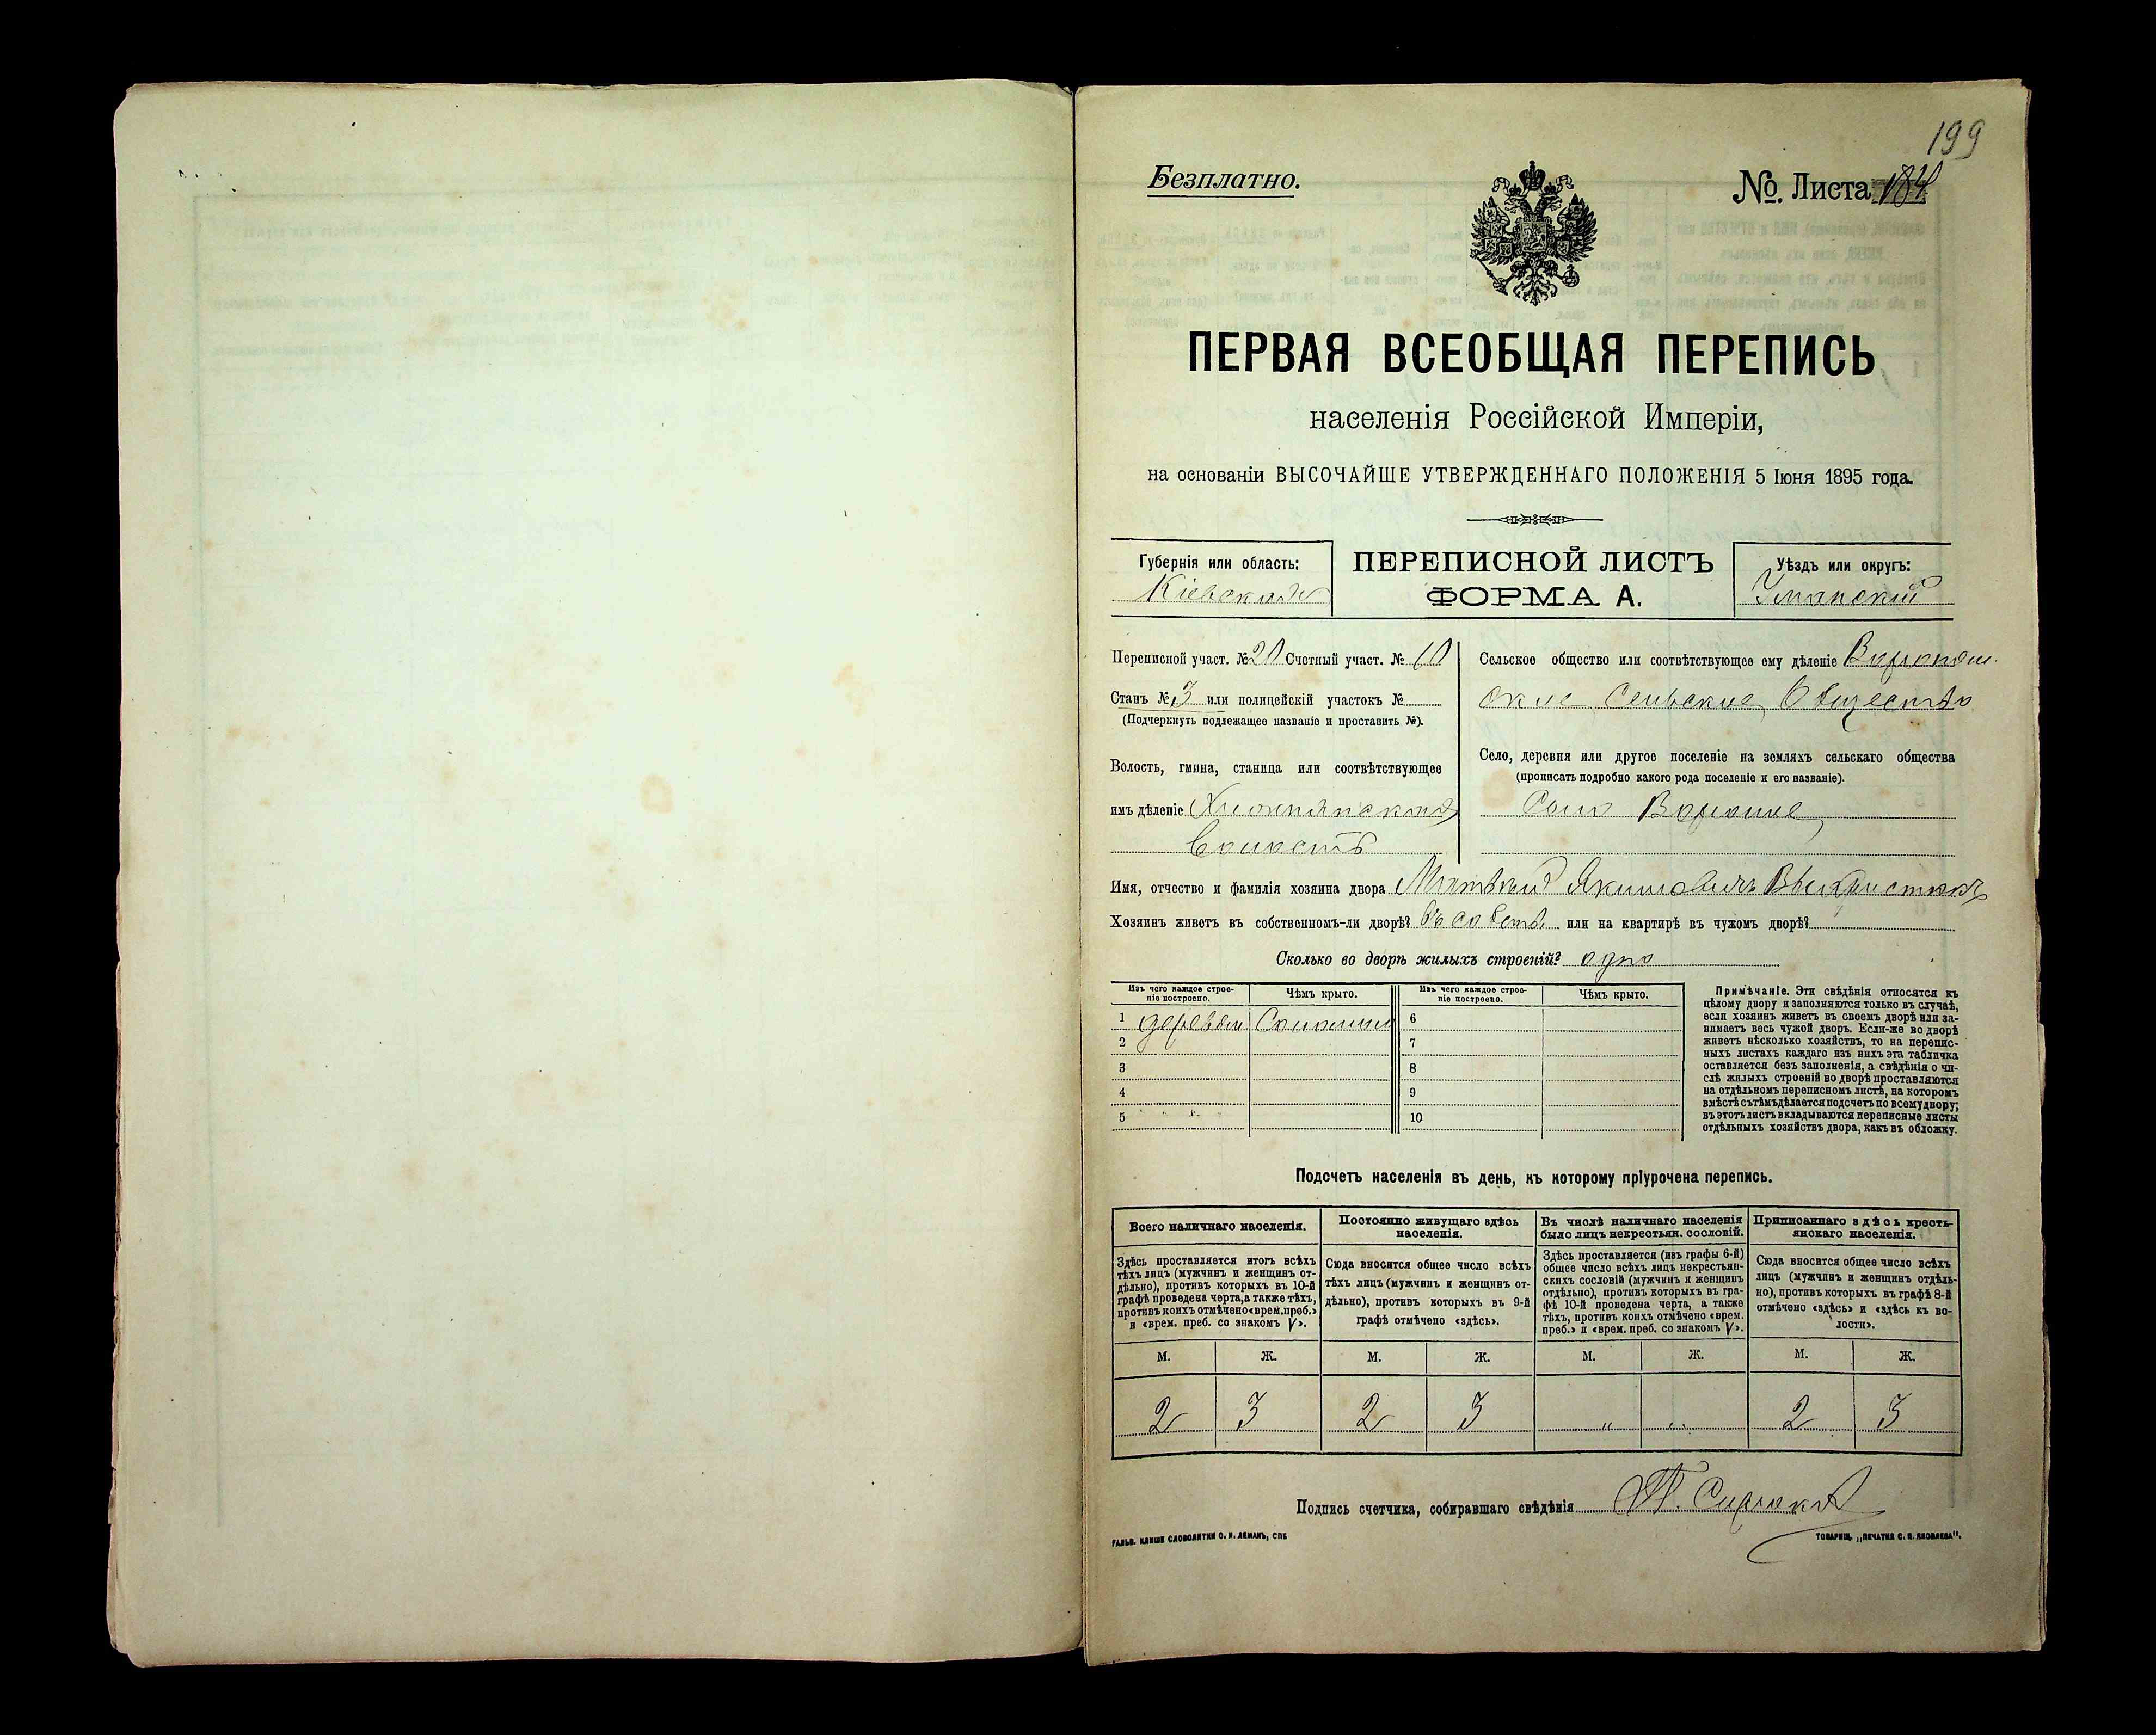 199
Безплатно.
№. Листа 184
ПЕРВАЯ ВСЕОБЩАЯ ПЕРЕПИСЬ
населенія Россійской Имперіи,
на основаніи ВЫСОЧАЙШЕ УТВЕРЖДЕННАГО ПОЛОЖЕНІЯ 5 Іюня 1895 года.
Губернія или область:
Кіевская
ПЕРЕПИСНОЙ ЛИСТЪ
ФОРМА А.
Уѣздъ или округъ:
Уманскій
Переписной участ. № 20 Счетный участ. № 10
Станъ № 3 или полицейскій участокъ №
(Подчеркнуть подлежащее названіе и проставить №).
Волость, гмина, станица или соотвѣтствующее
имъ дѣленіе
Волость
Сельское общество или соотвѣтствующее ему дѣленіе
ское Сельское Общество
Село, деревня или другое поселеніе на земляхъ сельскаго общества
(прописать подробно какого рода поселеніе и его названіе).
Село Вороное
Имя, отчество и фамилія хозяина двора Матвѣй Якимовичъ
Хозяинъ живетъ въ собственномъ-ли дворѣ? въ собств. или на квартирѣ въ чужомъ дворѣ?
Сколько во дворѣ жилыхъ строеній? одно
Изъ чего каждое строеніе построено.
Чѣмъ крыто.
Изъ чего каждое строеніе построено.
Чѣмъ крыто.
1 деревян Соломою 6
2 7
3 8
4 9
5 10
Примѣчаніе. Эти свѣдѣнія относятся къ
цѣлому двору и заполняются только въ случаѣ,
если хозяинъ живетъ въ своемъ дворѣ или за-
нимаетъ весь чужой дворъ. Если-же во дворѣ
живетъ нѣсколько хозяйствъ, то на перепис-
ныхъ листахъ каждаго изъ нихъ эта табличка
оставляется безъ заполненія, а свѣдѣнія о чи-
слѣ жилыхъ строеній во дворѣ проставляются
на отдѣльномъ переписномъ листѣ, на которомъ
вмѣстѣ съ тѣмъ дѣлается подсчетъ по всему двору;
въ этотъ листъ вкладываются переписные листы
отдѣльныхъ хозяйствъ двора, какъ въ обложку.
Подсчетъ населенія въ день, къ которому пріурочена перепись.
Всего наличнаго населенія.
Здѣсь проставляется итогъ всѣхъ
тѣхъ лицъ (мужчинъ и женщинъ от-
дѣльно), противъ которыхъ въ 10-й
графѣ проведена черта, а также тѣхъ,
противъ коихъ отмѣчено «врем. преб.»
и «врем. преб. со знакомъ V».
Постоянно живущаго здѣсь
населенія.
Сюда вносится общее число всѣхъ
тѣхъ лицъ (мужчинъ и женщинъ от-
дѣльно), противъ которыхъ въ 9-й
графѣ отмѣчено «здѣсь».
Въ числѣ наличнаго населенія
было лицъ некрестьян. сословій.
Здѣсь проставляется (изъ графы 6-й)
общее число всѣхъ лицъ некрестьян-
скихъ сословій (мужчинъ и женщинъ
отдѣльно), противъ которыхъ въ гра-
фѣ 10-й проведена черта, а также
тѣхъ, противъ коихъ отмѣчено «врем.
преб.» и «врем. преб. со знакомъ V».
Приписаннаго здѣсь кресть-
янскаго населенія.
Сюда вносится общее число всѣхъ
лицъ (мужчинъ и женщинъ отдѣль-
но), противъ которыхъ въ графѣ 8-й
отмѣчено «здѣсь» и «здѣсь къ во-
лости».
М. Ж. М. Ж. М. Ж. М. Ж.
2 3 2 3 „ „ 2 3
Подпись счетчика, собиравшаго свѣдѣнія
ГАЛЬВ. КЛИШЕ СЛОВОЛИТНИ О. И. ЛЕМАНЪ, СПБ
ТОВАРИЩ. „ПЕЧАТНЯ С. П. ЯКОВЛЕВА".